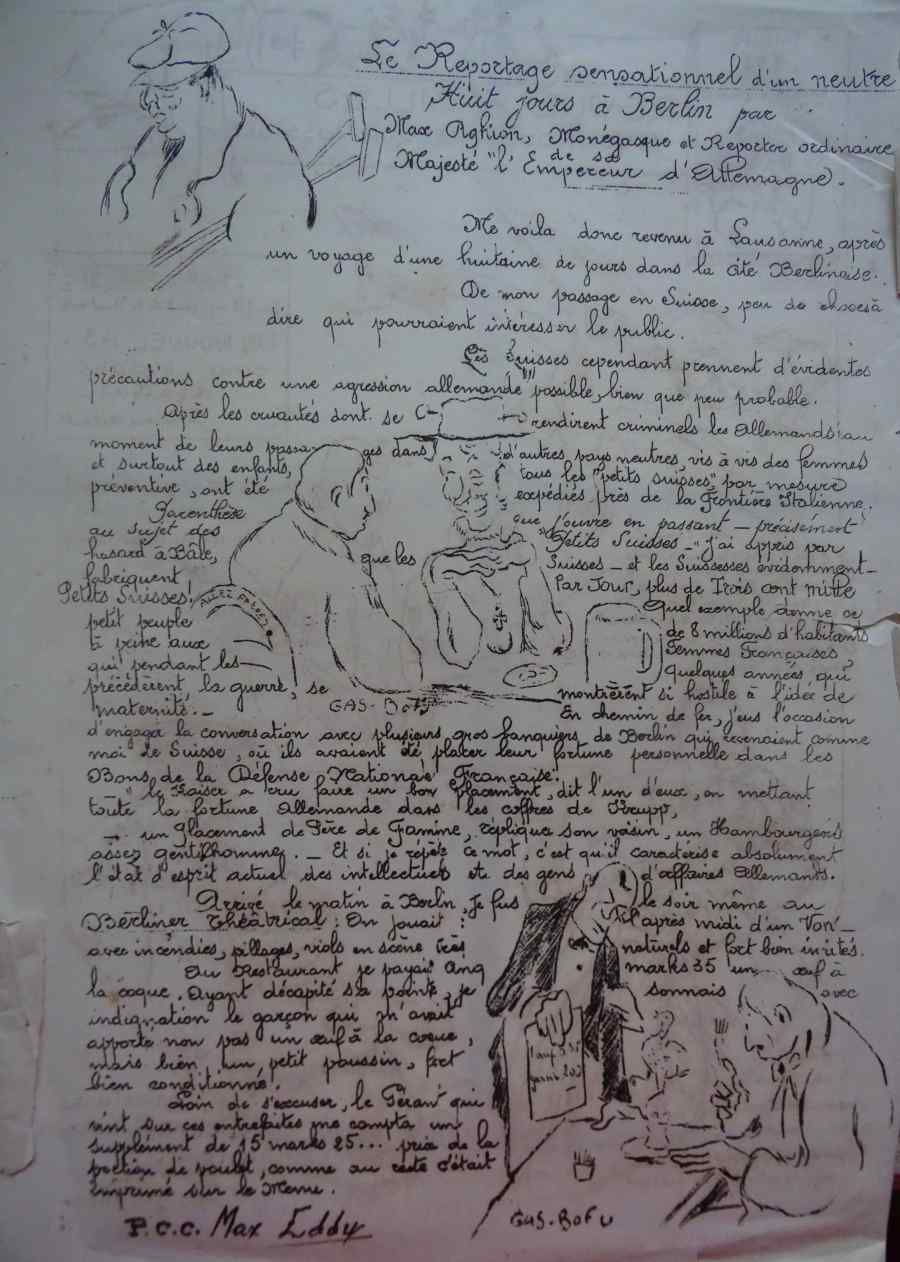 Le Reportage sensationnel d'un neutre
Huit jours à Berlin par
Max Aghion, Monégasque et Reporter ordinaire
de sa
Majesté "l'Empereur d'Allemagne.
Me voila donc revenu à Lausanne, après
un voyage d'une huitaine de jours dans la cité Berlinoise.
De mon passage en Suisse, peu de choses à
dire qui pourraient intéresser le public.
Les Suisses cependant prennent d'évidentes
précautions contre une agression allemande possible, bien que peu probable.
Après les cruautés dont se rendirent criminels les Allemands au
moment de leurs passages dans d'autres pays neutres, vis à vis des femmes
et surtout des enfants, tous les "petits suisses", par mesure
préventive, ont été expédiés près de la Frontière Italienne.
Parenthèse que j'ouvre en passant — précisement
au sujet des "Petits Suisses" — j'ai appris par
hasard à Bâle, que les Suisses — et les Suissesses évidemment —
fabriquent Par Jour, plus de Trois cent mille
Petits Suisses! Quel exemple donne ce
ALLEZ PASSEZ
petit peuple de 8 millions d'habitants
à peine aux Femmes Françaises
qui pendant les quelques années, qui
précédèrent, la guerre, se montrèrent si hostile à l'idée de
maternité. —
GAS-BOFU
En chemin de fer, j'eus l'occasion
d'engager la conversation avec plusieurs gros banquiers de Berlin qui revenaient comme
moi de Suisse, où ils avaient été placer leur fortune personnelle dans les
Bons de la Défense Nationale Française.
"le Kaiser a cru faire un bon placement, dit l'un d'eux, en mettant
toute la fortune Allemande dans les coffres de Krupp,
— un Placement de Père de Famine, répliqua son voisin, un Hambourgeois
assez gentilhomme. — Et si je répète ce mot, c'est qu'il caractérise absolument
l'état d'esprit actuel des intellectuels etc des gens d'affaires Allemants.
Arrivé le matin à Berlin, Je fus le soir même au
Berliner Théâtrical: On jouait: "l'après midi d'un Von" —
avec incendies, pillages, viols en scène très naturels et fort bien imités.
Au Restaurant je payai cinq marks 35 un œuf à
la coque. Ayant décapité sa pointe, je sonnais avec
indignation le garçon qui m'avait
apporté non pas un œuf à la coque,
mais bien un petit poussin, fort
bien conditionné.
Loin de s'excuser, le Gérant qui
vint sur ces entrefaites me compta un
supplément de 15 marks 25... prix de la
portion de poulet, comme au reste c'était
imprimé sur le Menu.
P.C.C. Max Eddy
GAS-BOFU